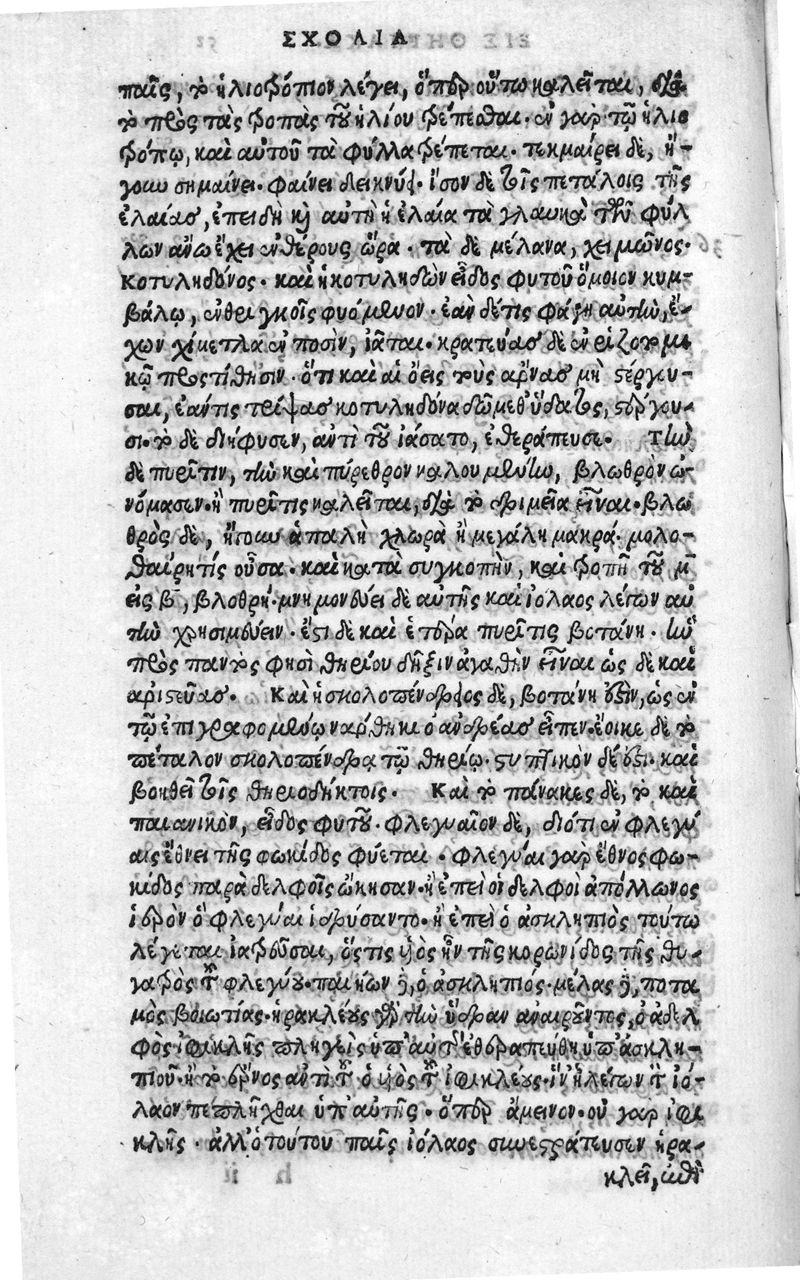 ΣΧΟΛΙΑ
παῖς, τὸ ἡλιοτρόπιον λέγει, ὅπερ οὕτω καλεῖται, διὰ
τὸ πρὸς τὰς τροπὰς τοῦ ἡλίου τρέπεσθαι. ἐν γὰρ τῷ ἡλιο
τρόπῳ, καὶ αὐτοῦ τὰ φύλλα τρέπεται. τεκμαίρει δὲ, ἤ-
γουν σημαίνει. φαίνει δεικνύς. ἴσον δὲ τοῖς πετάλοις τῆς
ἐλαίας, ἐπειδὴ καὶ αὐτὴ ἡ ἐλαία τὰ γλαυκὰ τῶν φύλ
λων ἄνω ἔχει ἐν θέρους ὥρα. τὰ δὲ μέλανα, χειμῶνος.
Κοτυληδόνος. καὶ ἡ κοτυληδὼν εἶδος φυτοῦ ὅμοιον κυμ-
βάλῳ, ἐν θριγκοῖς φυόμενον. ἐὰν δέ τις φάγῃ αὐτὴν, ἔ-
χων χίμετλα ἐν ποσὶν, ἰᾶται. κρατεύας δὲ ἐν ῥιζοτομι
κῷ προστίθησιν. ὅτι καὶ αἱ ὄεις τοὺς ἄρνας μὴ στέργου-
σαι, ἐάν τις τρίψας κοτυληδόνα δῷ μεθ' ὕδατος, στέργου-
σι. τὸ δὲ διήφυσεν, ἀντὶ τοῦ ἰάσατο, ἐθεράπευσε. Τὴν
δὲ πυρῖτιν, τὴν καὶ πύρεθρον καλουμένην, βλωθρὸν ὠ-
νόμασεν. ἢ πυρῖτις καλεῖται, διὰ τὸ δριμεῖα εἶναι. βλω
θρὸς δὲ, ἤτοι ἁπαλὴ χλωρὰ ἢ μεγάλη μακρά. μολο-
θαίρητίς οὖσα. καὶ κατὰ συγκοπὴν, καὶ τροπῇ τοῦ μ̄
εἰς β̄, βλοθρή. μνημονεύει δὲ αὐτῆς καὶ ἰόλαος λέγων αὐ
τὴν χρησιμεύειν. ἔστι δὲ καὶ ἑτέρα πυρῖτις βοτάνη. ἣν
πρὸς παντὸς φησὶ θηρίου δῆξιν ἀγαθὴν εἶναι ὡς δὲ καὶ
ἀριστεύας. Καὶ ἡ σκολοπένδριος δὲ, βοτάνη ἐστὶν, ὡς ἐν
τῷ ἐπιγραφομένῳ ναρθηκι ὁ ἀνδρέας εἶπεν. ἔοικε δὲ τὸ
πέταλον σκολοπένδρᾳ τῷ θηρίῳ. στυπτικὸν δέ ἐστι. καὶ
βοηθεῖ τοῖς θηριοδήκτοις. Καὶ τὸ πάνακες δὲ, τὸ καὶ
παιανικὸν, εἶδος φυτοῦ. φλεγυαῖον δὲ, διότι ἐν φλεγύ
αις ἔθνει τῆς φωκίδος φύεται. φλεγύαι γὰρ ἔθνος φω-
κίδος παρὰ δελφοῖς ᾤκησαν. ἢ ἐπεὶ οἱ δελφοι ἀπόλλωνος
ἱερὸν ὃ φλεγύαι ἱδρύσαντο. ἢ ἐπεὶ ὁ ἀσκληπιὸς τούτω
λέγεται ἰατρεῦσαι, ὅστις υἱὸς ἦν τῆς κορωνίδος τῆς θυ-
γατρὸς τοῦ φλεγύου. παιήων δὲ, ὁ ἀσκληπιός. μέλας δὲ, ποτα
μὸς βοιωτίας. ἡρακλέους γὰρ τὴν ὕδραν ἀναιροῦντος, ὁ ἀδελ
φὸς ἰφικλῆς πληγεὶς ὑπ' αὐτῆς ἐθεραπεύθη ὑπ' ἀσκλη-
πιοῦ. ἢ τὸ ἔρνος ἀντὶ τοῦ ὁ υἱὸς τοῦ ἰφικλέους. ἵν' ᾖ λέγων τὸν ἰό-
λαον πεπλῆχθαι ὑπ' αὐτῆς. ὅπερ ἄμεινον. οὐ γὰρ ἰφι
κλῆς. ἀλλ' ὁ τούτου παῖς ἰόλαος συνεστράτευσεν ἡρα-
κλεῖ, ὠθὶ